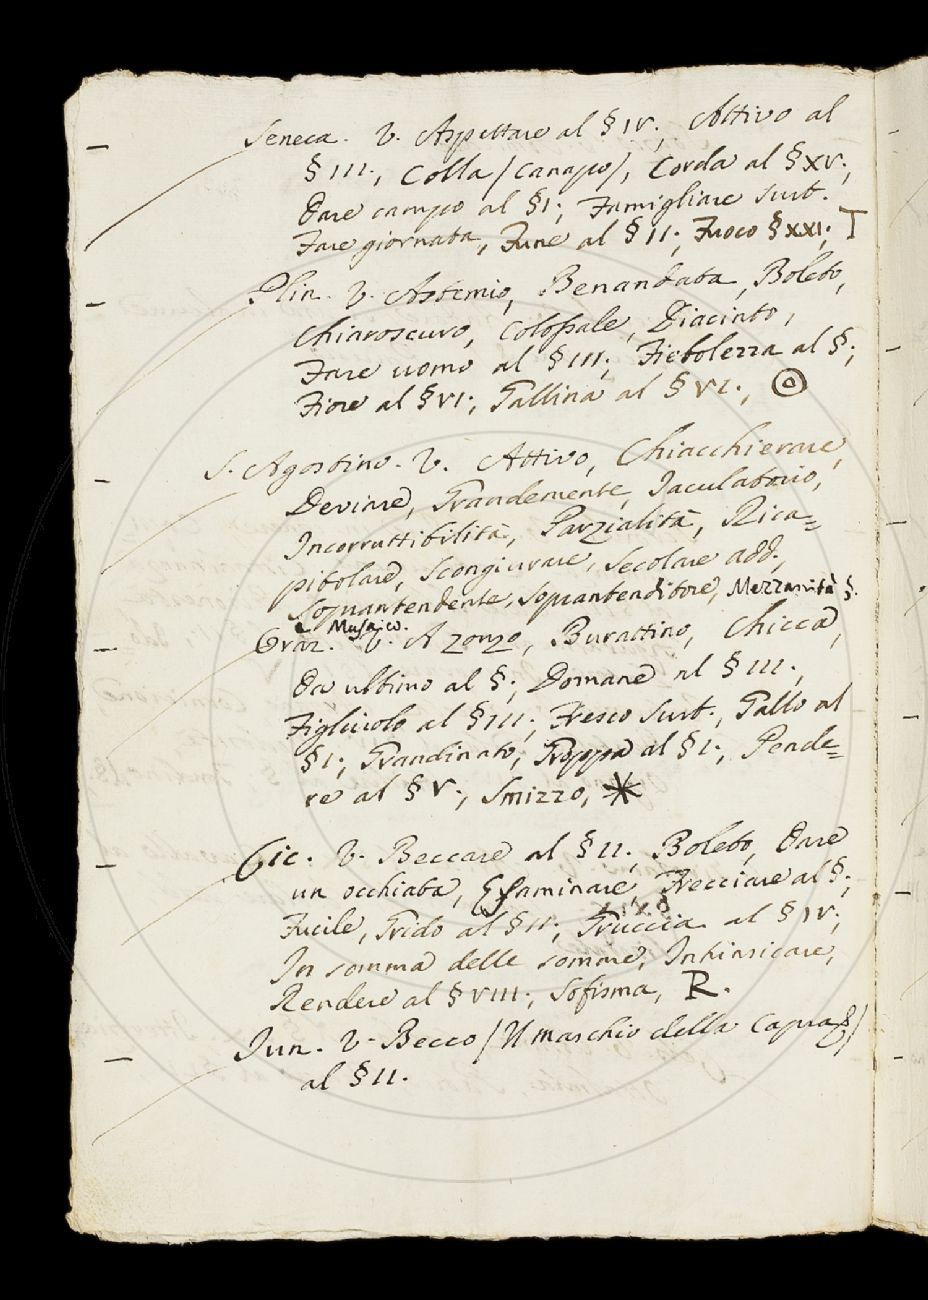 Seneca. V. Aspettare al § IV; Attivo al
§ III., Colla (Canapo), Corda al § XV.;
Dare campo al § I; Famigliare Sust.
Fare giornata, Fune al § II; Fuoco § XXI; T
Plin. V. Astemio, Benandata, Boleto,
Chiaroscuro, Colossale, Diacinto,
Fare uomo al § III; Fievolezza al §;
Fiore al § VI; Gallina al § VI.,
S. Agostino. V. Attivo, Chiacchierare,
Deviare, Grandemente, Iaculatorio,
Incorruttibilità, Parzialità, Rica=
pitolare, Scongiurare, Secolare add.,
Soprantendente, Soprantenditore, Mezzanità §.
Musaico.
Oraz. V. A zonzo, Burattino, Chicca,
Da ultimo al §; Domane al § III.,
Figliuolo al § III; Fresco Sust., Gallo al
§ I; Grandinato; Groppa al § I.; Pende=
re al § V., Smizzo, *
Cic. V. Beccare al § II; Boleto, Dare
un occhiata, Esaminare, Frecciare al §;
Fucile, Grido al § II; Gruccia al § IV;
In somma delle somme, Intrinsicare,
Rendere al § VIII; Sofisma, R.
Iun. V. Becco (Il maschio della Capra)
al § II.